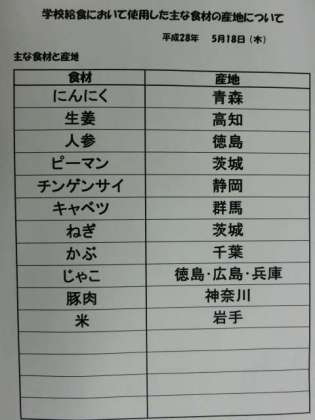 学校給食において使用した主な食材の産地について
平成28年 5月18日（木）
主な食材と産地
食材 産地
にんにく 青森
生姜 高知
人参 徳島
ピーマン 茨城
チンゲンサイ 静岡
キャベツ 群馬
ねぎ 茨城
かぶ 千葉
じゃこ 徳島・広島・兵庫
豚肉 神奈川
米 岩手